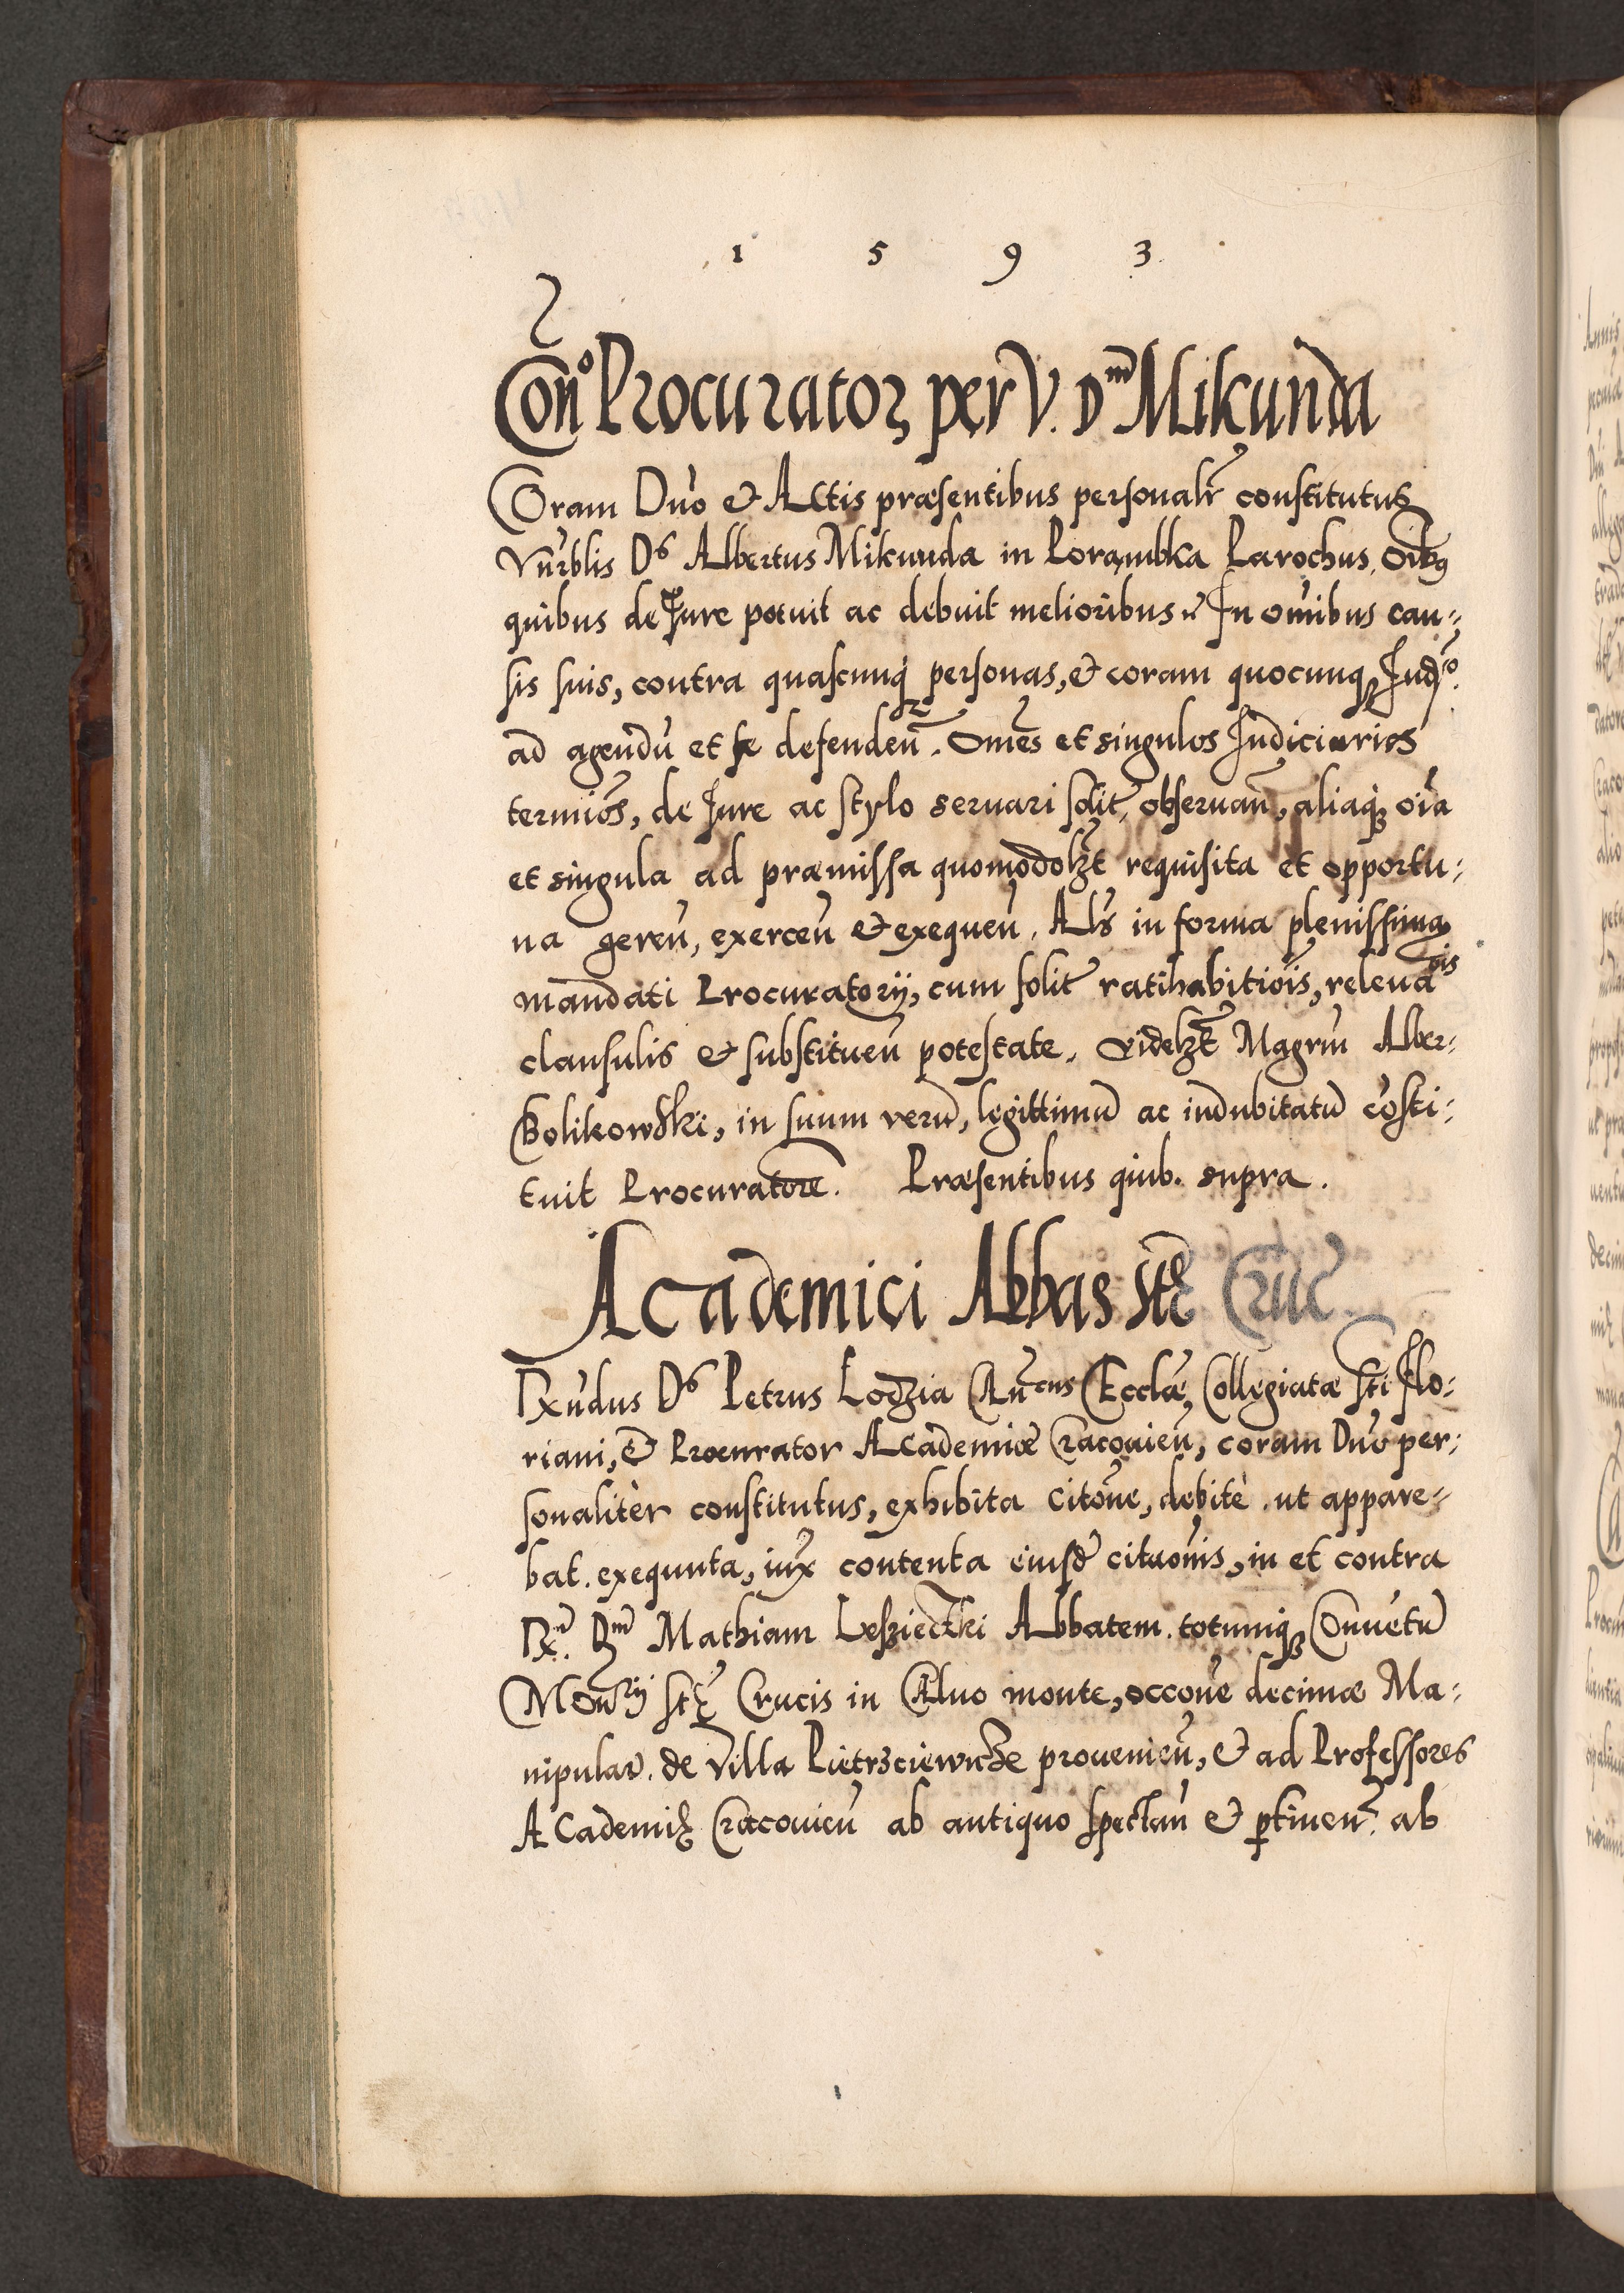 1 5 9 3
Con̄o Procurator, per V. Dm̄ Mikunda
Coram Dn̄o & Actis præsentibus personalr̄ constitutus
Vn̄rblis Ds Albertus Mikunda in Porąmbka Parochus, oībꝫ
quibus de Jure potuit ac debuit melioribus In omībus cau⸗
sis suis, contra quascunq personas, & coram quocunqꝫ Judco.
ad agendū et se defendeñ. Omēs et singulos Judiciarios
termīos, de Jure ac stylo seruari solit, obseruañ, aliaqꝫ oīa
et singula ad præmissa quomodolꝫt requisita et opportu⸗
na gereñ, exerceñ & exequeñ. Als in forma plenissima
mandati Procuratorij, cum solit ratihabitiōis, releuaōis
clausulis & substitueñ potestate. Videlꝫt Magrm̄ Alber⸗
Bolikowski, in suum verū, legittimū ac indubitatū cōsti⸗
tuit Procuratorē. Præsentibus quib. supra.
Academici Abbas stæ Cruc
Rx̄ndus Ds Petrus Lodzia Can̄cus Ecclæ Collegiatæ Sti Flo⸗
riani, & Procurator Academiæ Cracouieñ, coram Dn̄o per⸗
sonalitèr constitutus, exhibita citōne, debitè. ut appare⸗
bat. exequuta, iux̄ contenta eiusd̄ citaōnis, in et contra
Rx̄. Dm̄ Mathiam Leszieczki Abbatem. totumqꝫ Conuētū
Mon̄rij stæ Crucis in Caluo monte, occōne decimæ Ma⸗
nipular. de villa Pietrzciewicze prouenieñ, & ad Professores
Academię Cracouieñ ab antiquo spectañ & ptineñ. ab